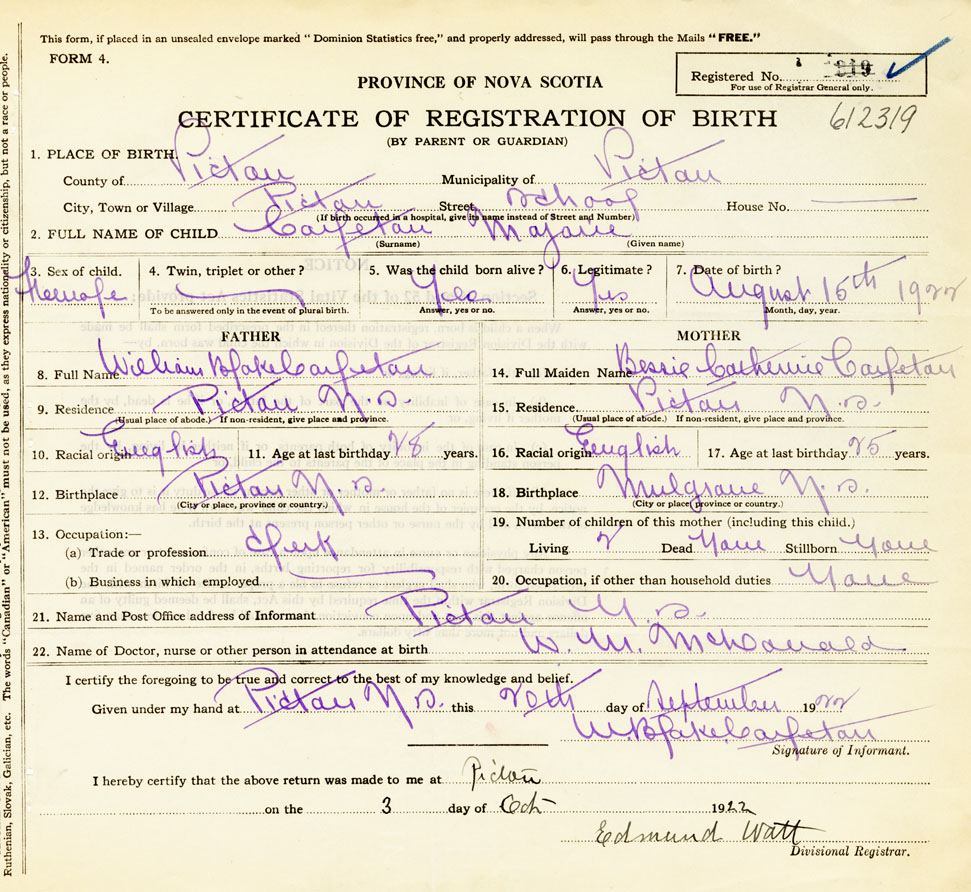 This form, if placed in an unsealed envelope marked " Dominion Statistics free," and properly addressed, will pass through the Mails "FREE."
FORM 4.
Registered No. 819
For use of Registrar General only.
PROVINCE OF NOVA SCOTIA
612319
CERTIFICATE OF REGISTRATION OF BIRTH
(BY PARENT OR GUARDIAN)
1. PLACE OF BIRTH.
County of Pictou Municipality of Pictou
City, Town or Village Pictou Street School House No.
(If birth occurred in a hospital, give its name instead of Street and Number)
2. FULL NAME OF CHILD Carleton Majorie
(Surname) (Given name)
3. Sex of child. Female
4. Twin, triplet or other?
To be answered only in the event of plural birth.
5. Was the child born alive? Yes
Answer, yes or no.
6. Legitimate? Yes
Answer, yes or no.
7. Date of birth? August 15th 1922
Month, day, year.
FATHER
8. Full Name William Blake Carleton
9. Residence Pictou N.S.
(Usual place of abode.) If non-resident, give place and province.
10. Racial origin English 11. Age at last birthday 28 years.
12. Birthplace Pictou N.S.
(City or place, province or country.)
13. Occupation:—
(a) Trade or profession Clerk
(b) Business in which employed
MOTHER
14. Full Maiden Name Bessie Catherine Carleton
15. Residence Pictou N.S.
(Usual place of abode.) If non-resident, give place and province.
16. Racial origin English 17. Age at last birthday 25 years.
18. Birthplace Mulgrave N.S.
(City or place, province or country.)
19. Number of children of this mother (including this child.)
Living 2 Dead None Stillborn None
20. Occupation, if other than household duties None
21. Name and Post Office address of Informant Pictou N.S.
22. Name of Doctor, nurse or other person in attendance at birth W. M. McDonald
I certify the foregoing to be true and correct to the best of my knowledge and belief.
Given under my hand at Pictou N.S. this 20th day of September 1922
W. Blake Carleton
Signature of Informant.
I hereby certify that the above return was made to me at Pictou
on the 3 day of Oct 1922
Edmund Watt
Divisional Registrar.
Ruthenian, Slovak, Galician, etc. The words "Canadian" or "American" must not be used, as they express nationality or citizenship, but not a race or people.